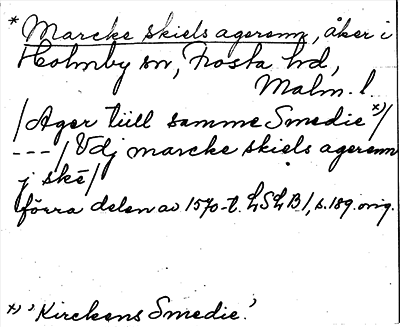 * Marcke skiels agerenn, åker i
Holmby sn, Frosta hd,
Malm. l.
/Ager tiill samme Smedie x)/
---/Vdj marcke skiels agerenn
j ské/
förra delen av 1570-t. LSLB 1, s. 189. orig.
x) 'Kirckens Smedie.'